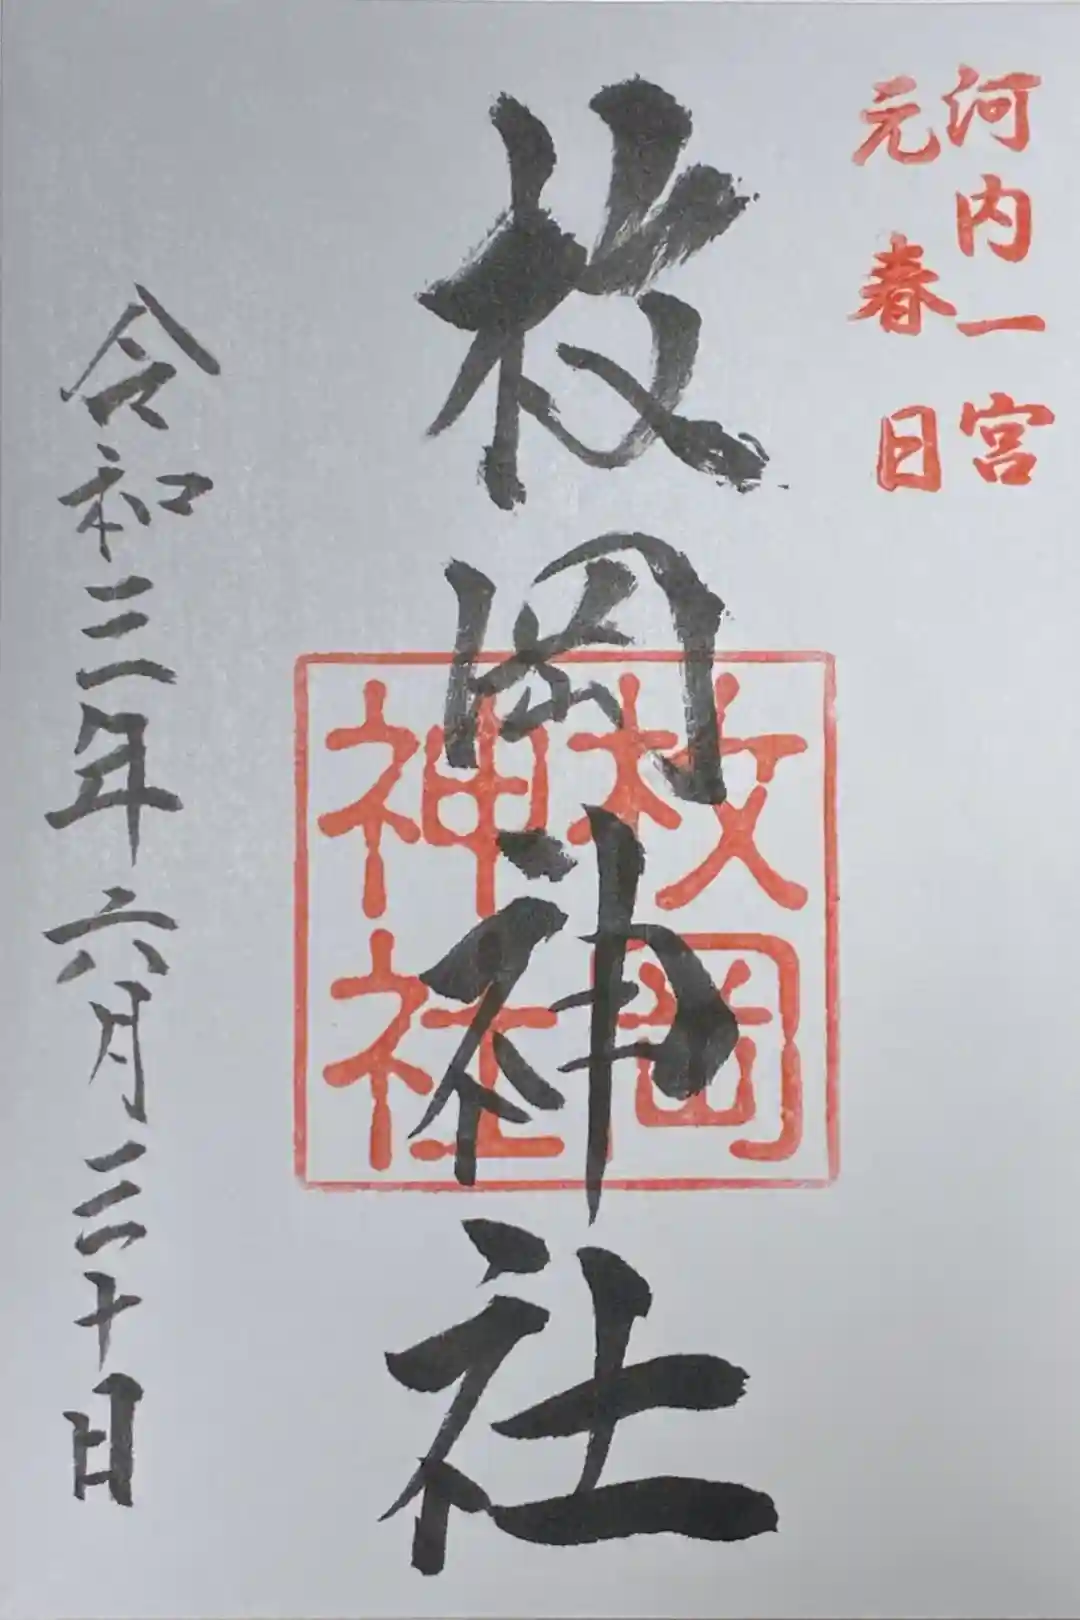 河内一宮
元春日
枚岡神社
枚岡
神社
令和三年六月三十日